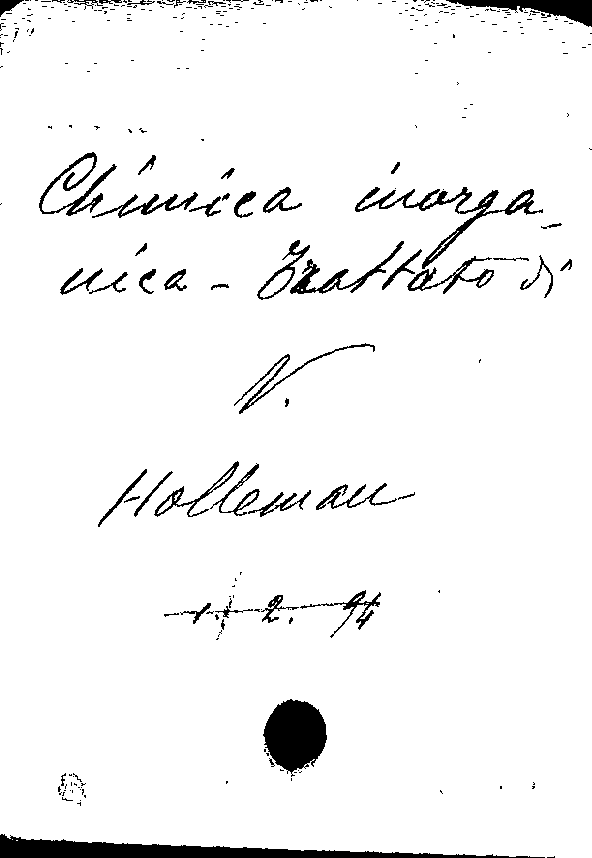 Chimica inorga-
nica - Trattato di
V.
Holleman
1. 2. 94